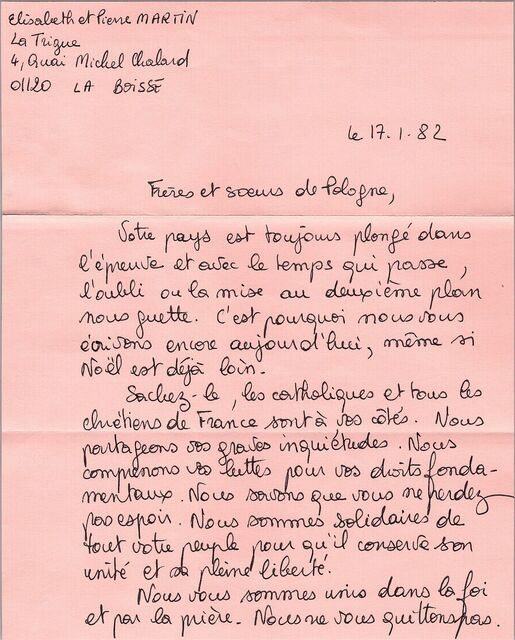 Elisabeth et Pierre MARTIN
La Trigue
4, Quai Michel Chalard
01120 LA BOISSE
le 17.1.82
Frères et soeurs de Pologne,
Votre pays est toujours plongé dans
l'épreuve et avec le temps qui passe,
l'oubli ou la mise au deuxième plan
nous guette. C'est pourquoi nous vous
écrivons encore aujourd'hui, même si
Noël est déjà loin.
Sachez-le, les catholiques et tous les
chrétiens de France sont à vos côtés. Nous
partageons vos graves inquiétudes. Nous
comprenons vos luttes pour vos droits fonda-
mentaux. Nous savons que vous ne perdez
pas espoir. Nous sommes solidaires de
tout votre peuple pour qu'il conserve son
unité et sa pleine liberté.
Nous vous sommes unis dans la foi
et par la prière. Nous ne vous quittons pas.